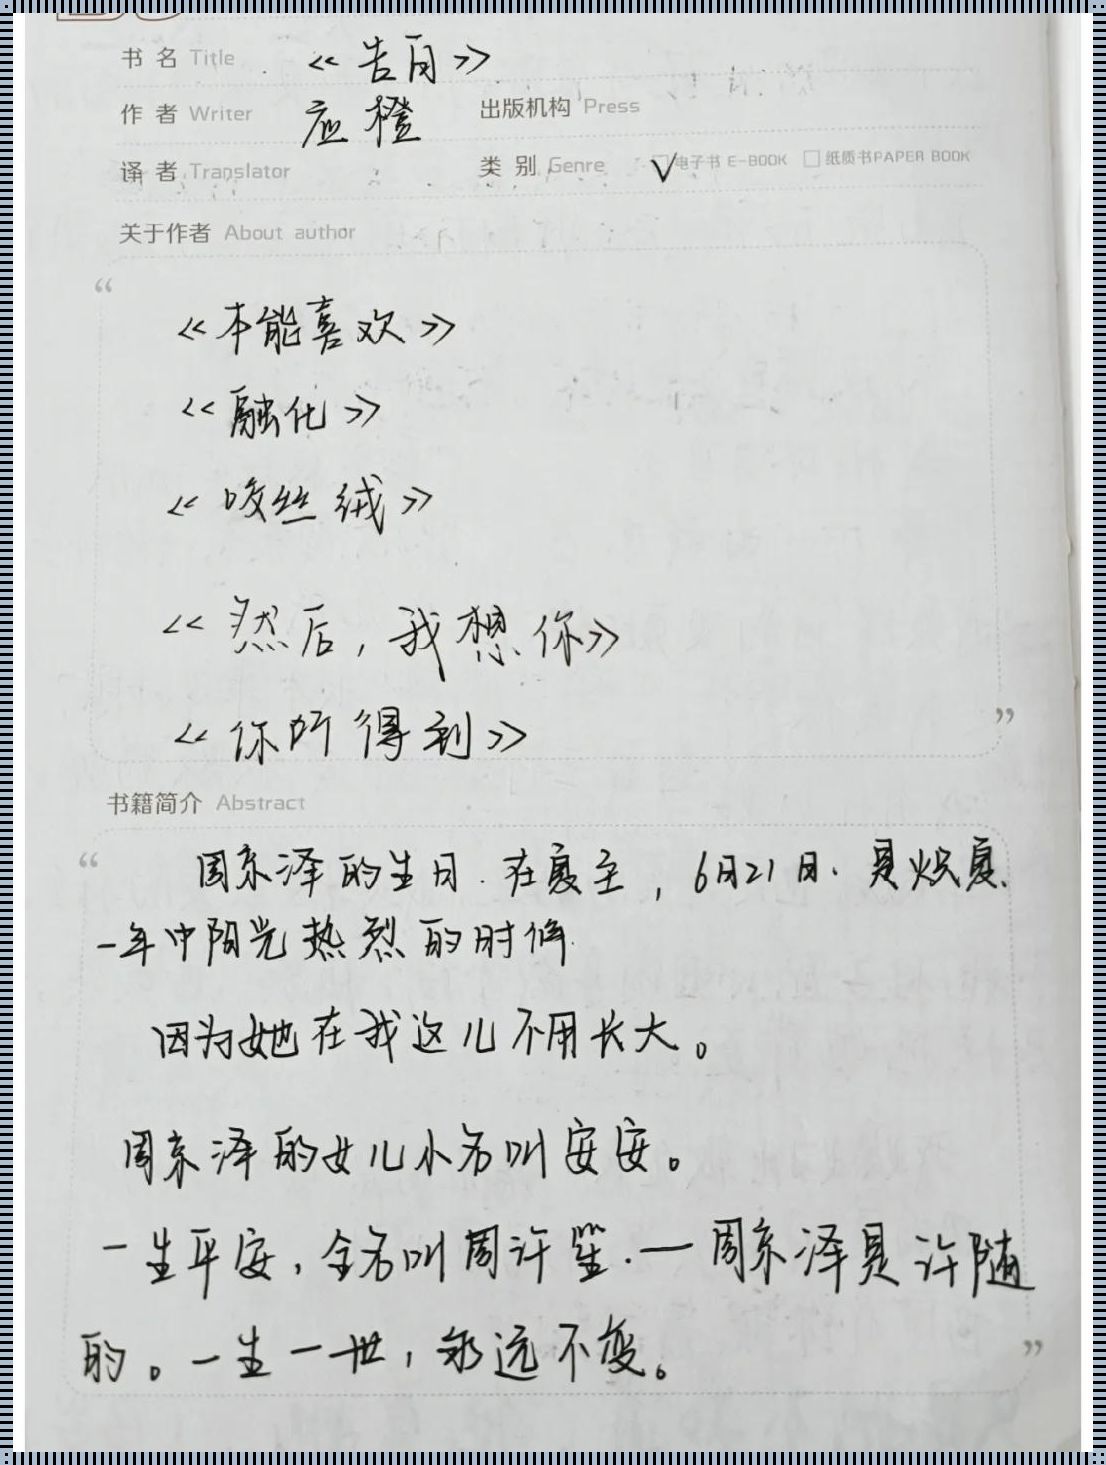 书 名 Title 《告白》
作 者 Writer 应橙 出版机构 Press
译 者 Translator 类 别 Genre √ 电子书 E-BOOK 纸质书PAPER BOOK
关于作者 About author
“
《本能喜欢》
《融化》
《咬丝绒》
《然后，我想你》
《你听得到》
”
书籍简介 Abstract
“
周京泽的生日.在夏至，6月21日.是炽夏.
一年中阳光热烈的时候.
因为她在我这儿不用长大。
周京泽的女儿小名叫安安。
一生平安，全名叫周许笙.—周京泽是许随
的。一生一世，永远不变。
”